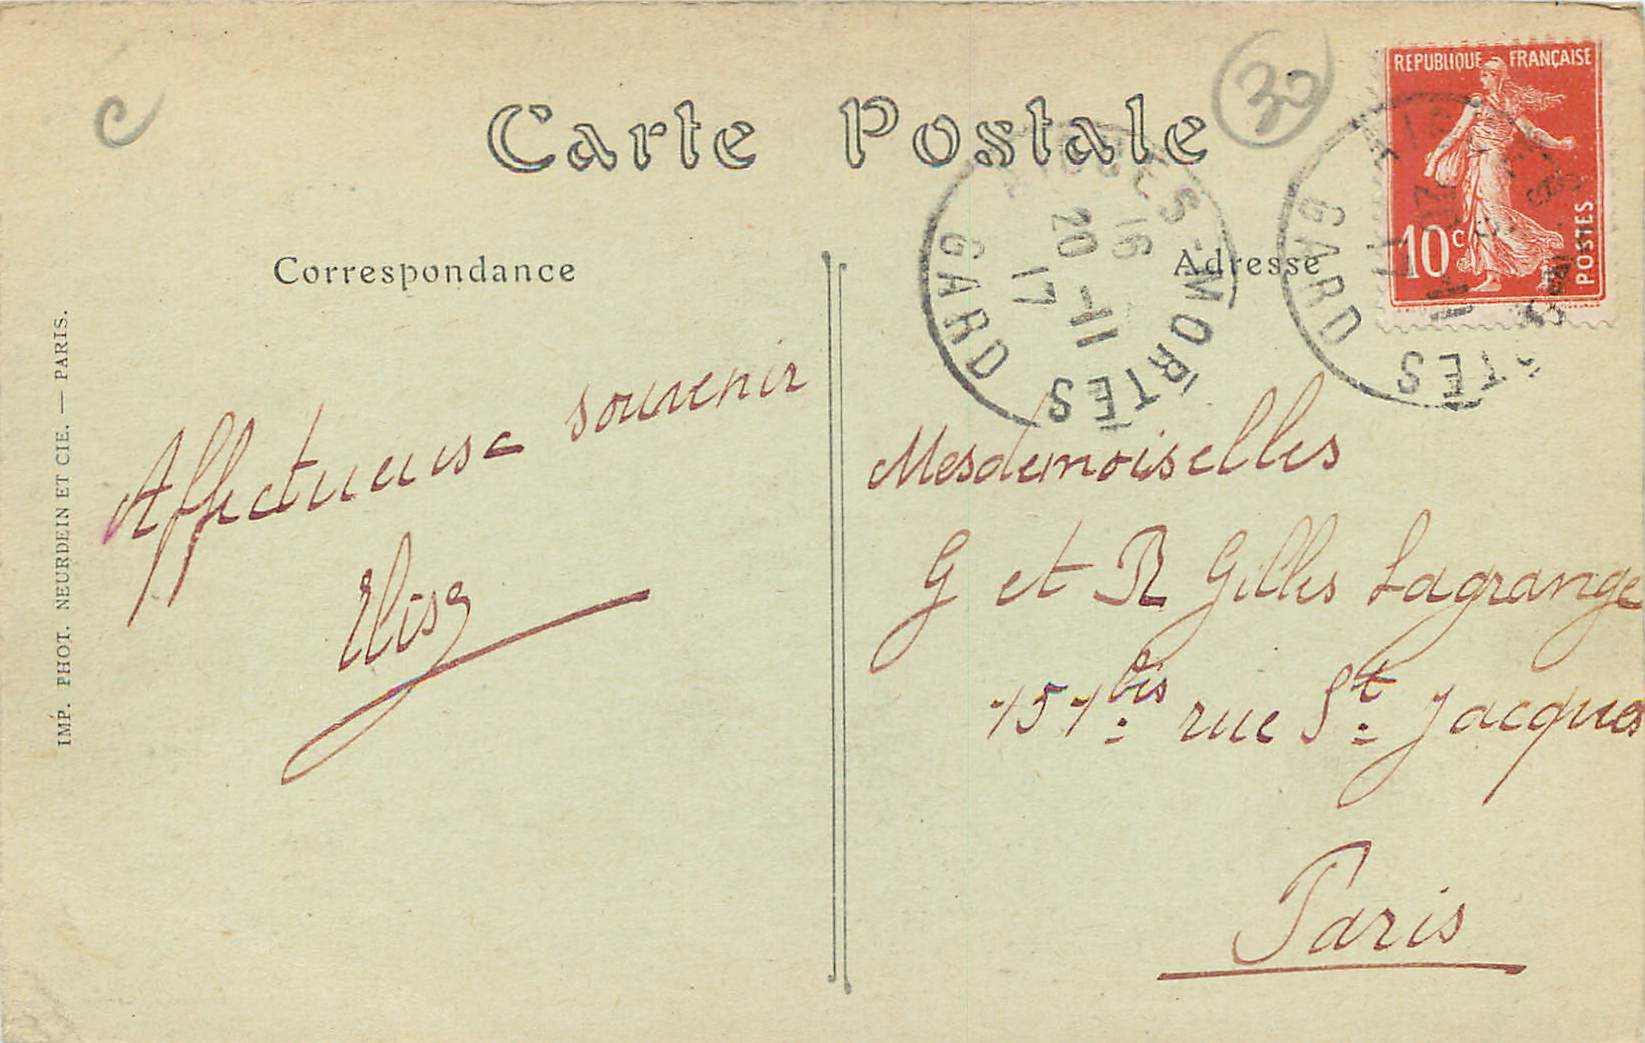 Carte Postale
30
REPUBLIQUE FRANÇAISE
10c
POSTES
AIGUES-MORTES
16
20-11
17
GARD
GARD
Correspondance
Adresse
Affectueuse souvenir
Mesdemoiselles
G et R Gilles Lagrange
151 bis rue St Jacques
Paris
IMP. PHOT. NEURDEIN ET CIE. — PARIS.